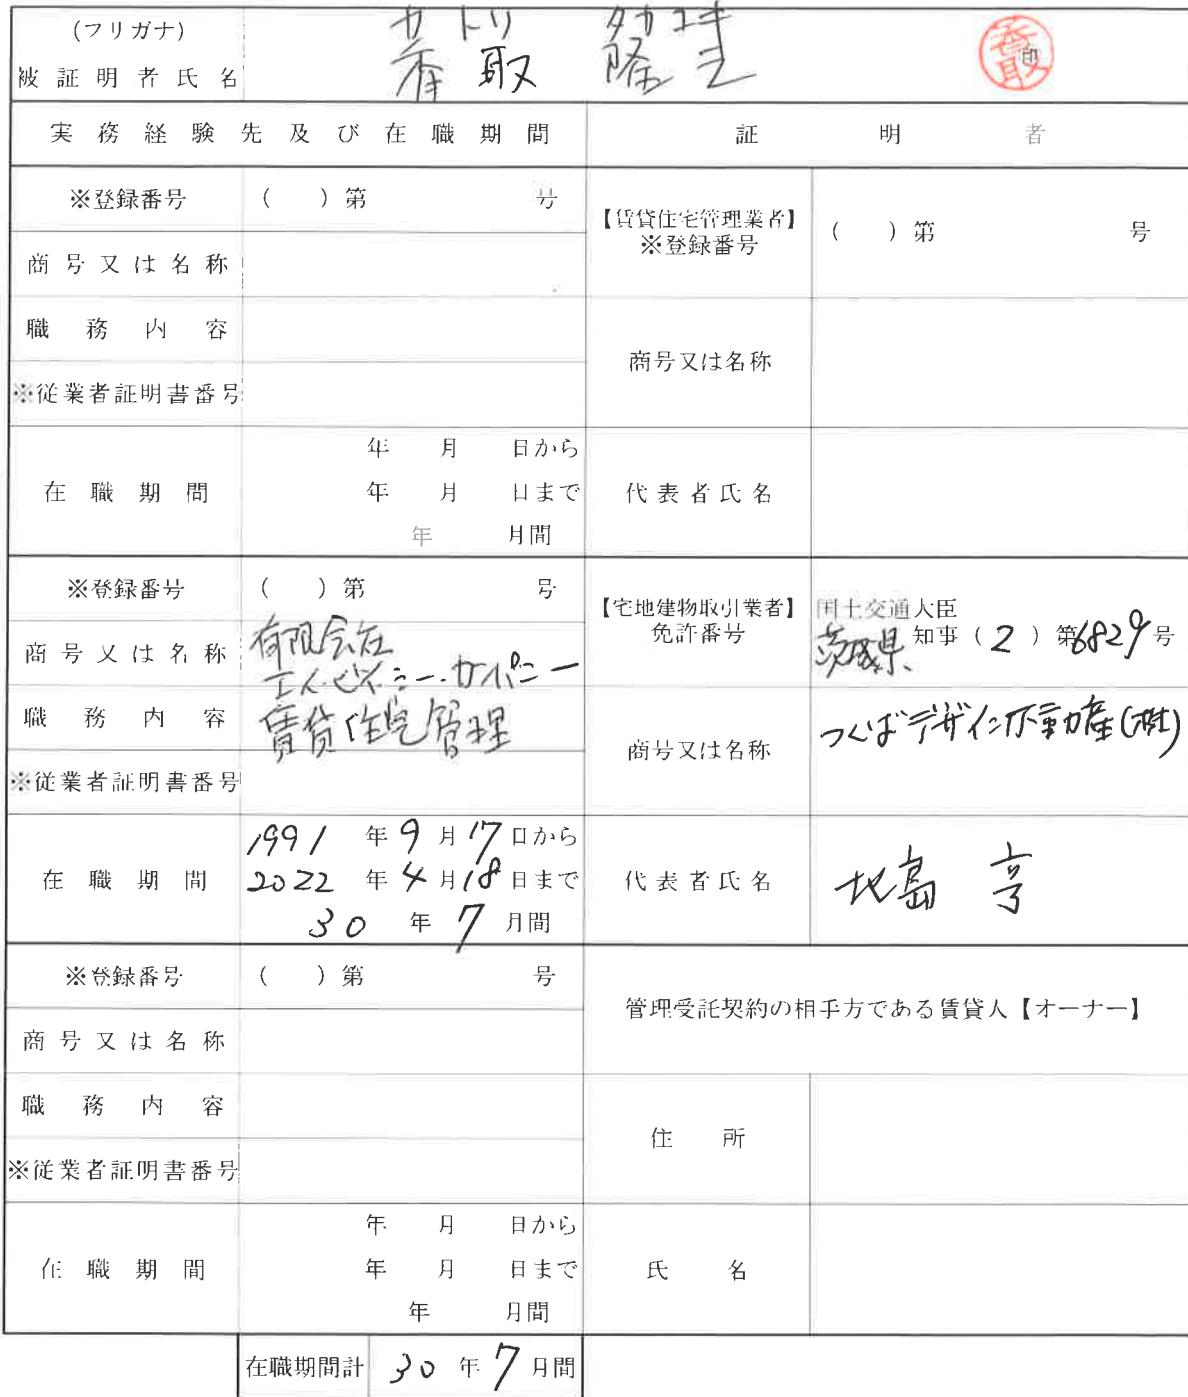 (フリガナ) カトリ タカユキ
被証明者氏名 香取 隆
香取 印
実務経験先及び在職期間 証明者
※登録番号 ( ) 第 号
商号又は名称
職務内容
※従業者証明書番号
在職期間
年 月 日から
年 月 日まで
年 月間
【賃貸住宅管理業者】
※登録番号
( ) 第 号
商号又は名称
代表者氏名
※登録番号 ( ) 第 号
商号又は名称 有限会社
エイ・ビイ・シー・カンパニー
職務内容 賃貸住宅管理
※従業者証明書番号
在職期間
1991 年 9 月 17 日から
2022 年 4 月 18 日まで
30 年 7 月間
【宅地建物取引業者】
免許番号
国土交通大臣
茨城県 知事 ( 2 ) 第6829号
商号又は名称 つくばデザイン不動産(株)
代表者氏名 地島 亨
※登録番号 ( ) 第 号
商号又は名称
職務内容
※従業者証明書番号
在職期間
年 月 日から
年 月 日まで
年 月間
管理受託契約の相手方である賃貸人【オーナー】
住所
氏名
在職期間計 30 年 7 月間